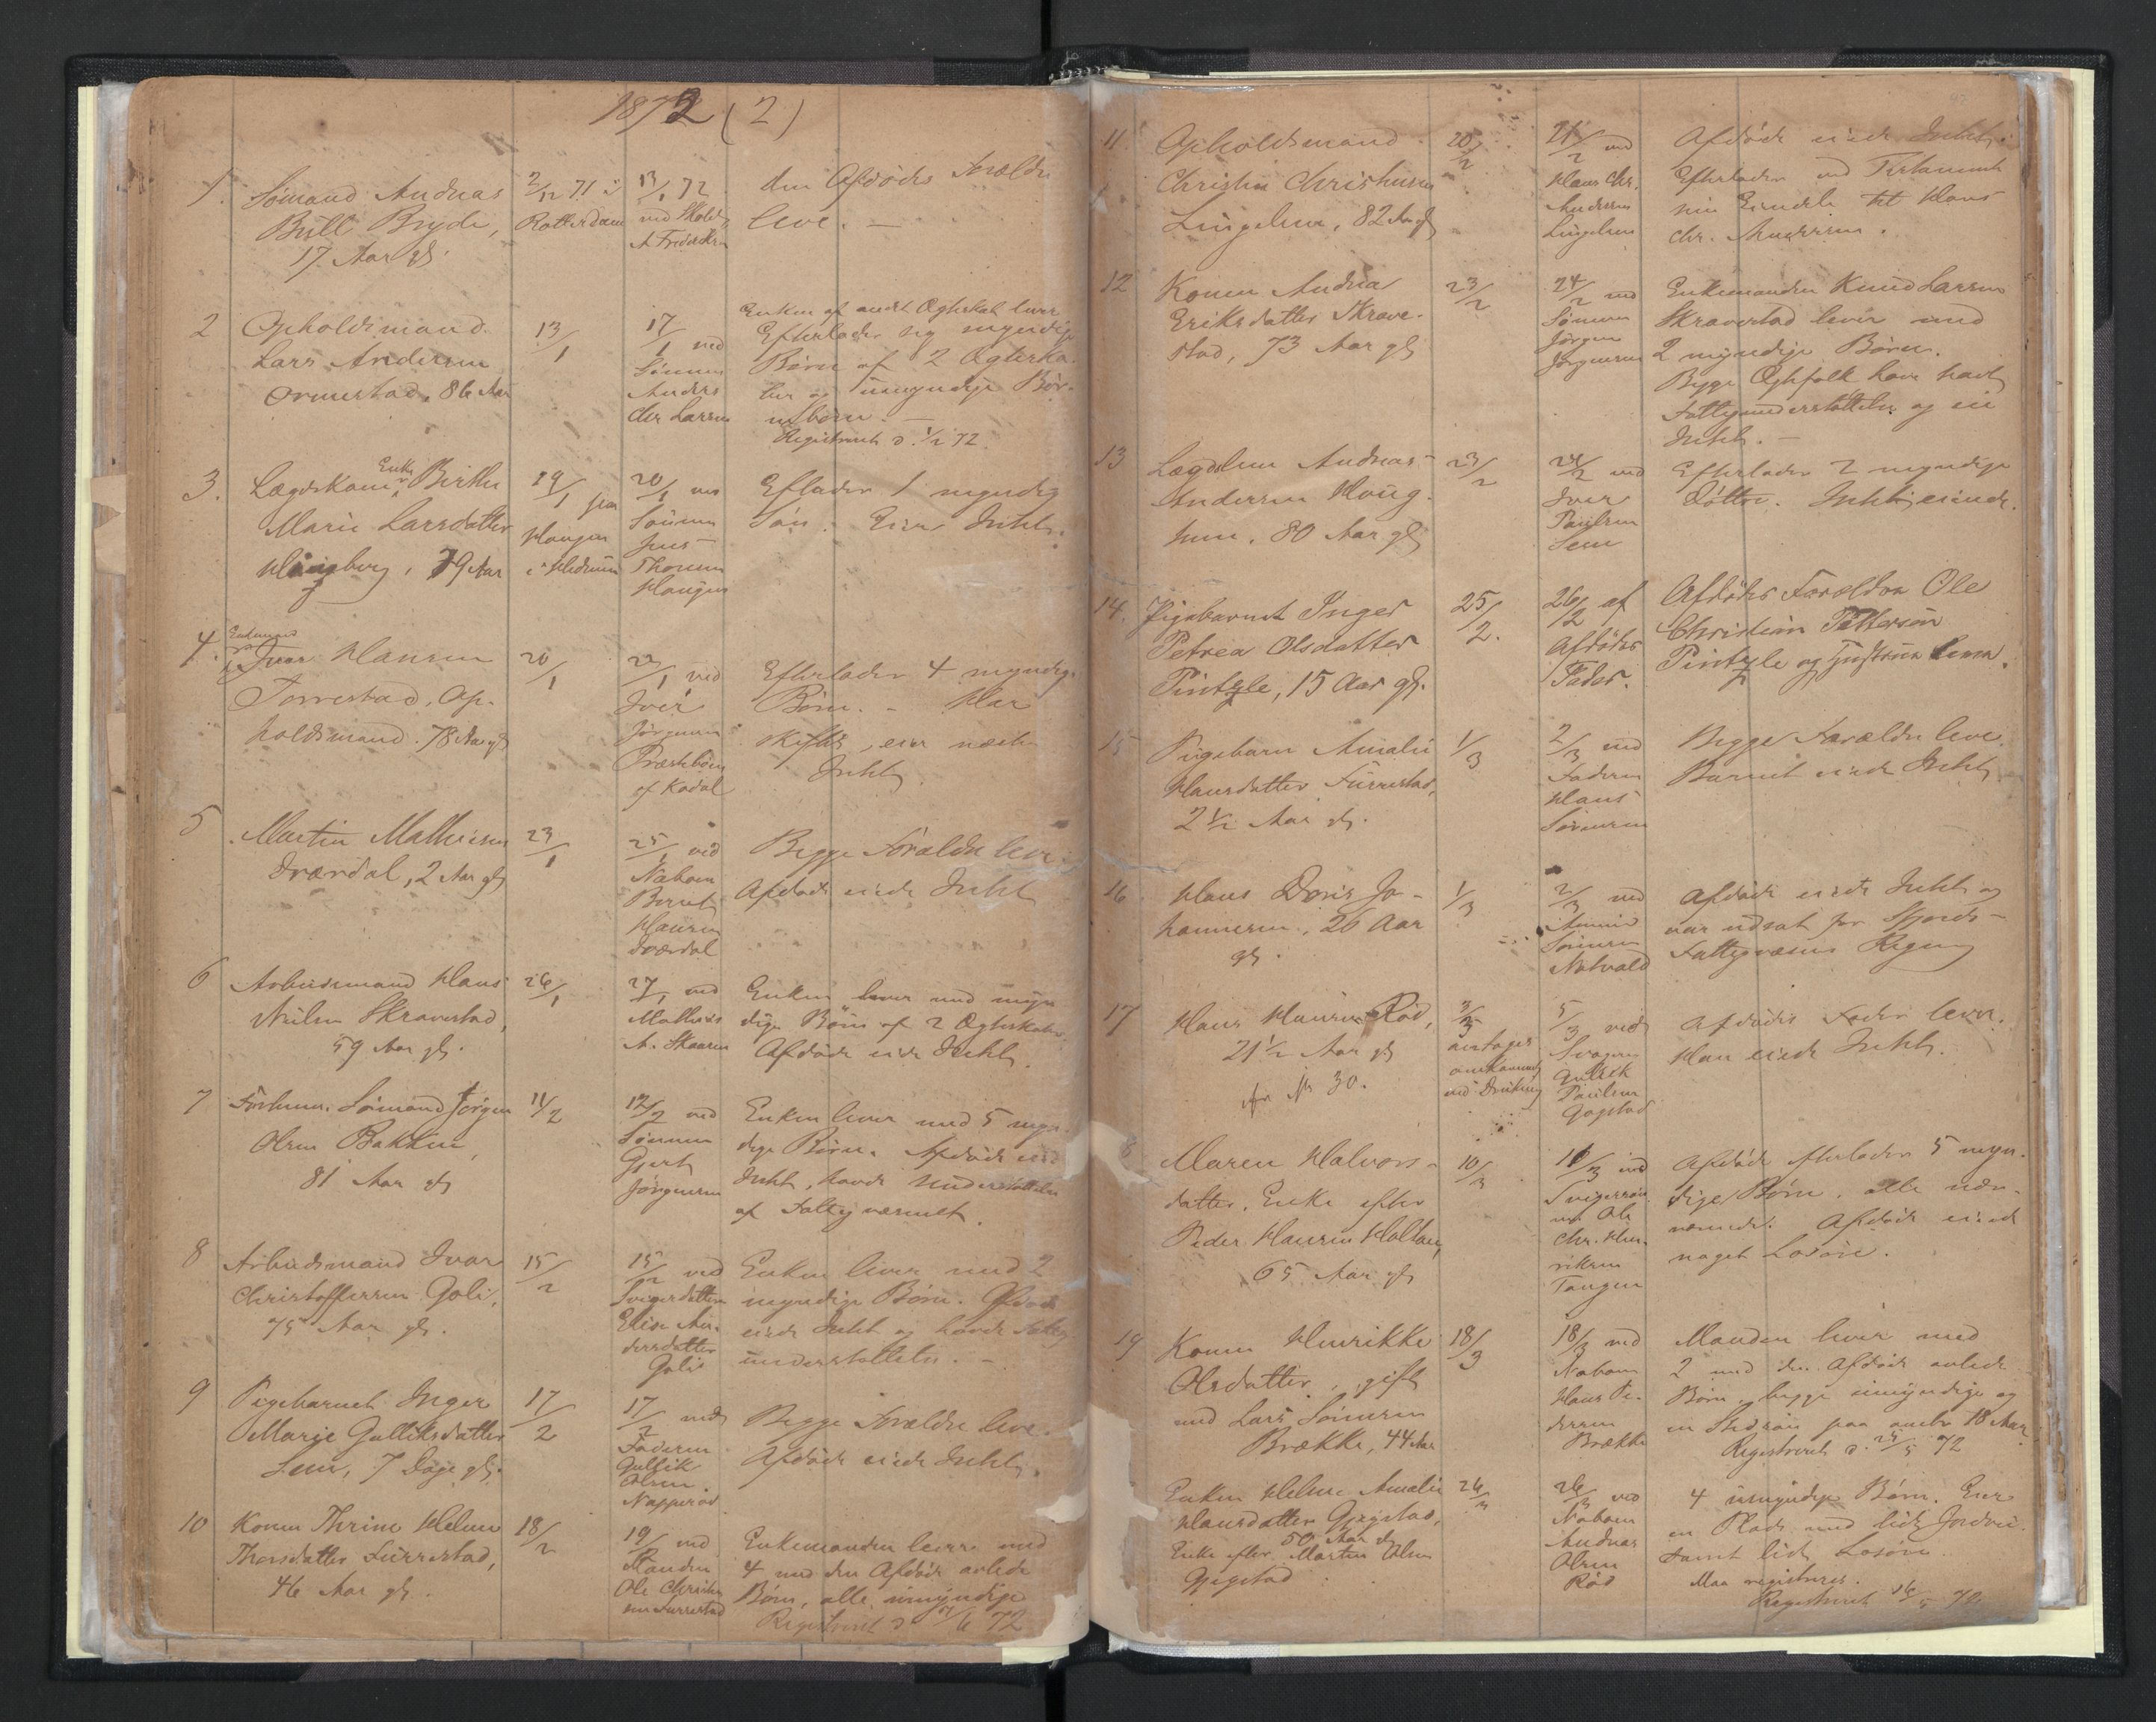 1872 (2)
1. Sømand Andreas
Bull Bryde,
17 Aar gl.
2/12 71 i
Rotterdam
13/1 72
ved Skolel.
A Fredriksen
den Afdødes Forældre
leve. —
2 Opholdsmand
Lars Andersen
Ormestad, 86 Aar
13/1
17/1 ved
Sönnen
Anders
Chr Larsen
Enken af andet Ægteskab lever
Efterlader sig myndige
Børn af 2 Ægteska-
ber og umyndige Bör-
nebörn. —
Registreret d. 1/2 72
3. Lægdskone Enke Birthe
Marie Larsdatter
Klingberg, 79 Aar
19/1 paa
Haugen
i Hedrum
20/1 ved
Sönnen
Jens
Thorsen
Haugen
Eflader 1 myndig
Sön. Eier Intet.
4. Enkemand
Ivar Hansen
Torrestad, Op-
holdsmand. 78 Aar gl
20/1
22/1 ved
Iver
Jørgensen
Præstbøen
af Kodal
Efterlader 4 myndige
Børn. - Har
skiftet, eier næsten
Intet
5 Martin Mathisen
Sværdal, 2 Aar gl
23/1
25/1 ved
Naboen
Bernt
Hansen
Sværdal
Begge Forældre leve.
Afdøde eiede Intet
6 Arbeidsmand Hans
Nilsen Skravestad,
59 Aar gl.
26/1
27/1 ved
Mathias
A. Skaaren
Enken lever med myn-
dige Børn af 2 Ægteskaber
Afdøde eiede Intet.
7 Forhenv. Sømand Jørgen
Olsen Bakken,
81 Aar gl
11/2
12/2 ved
Sønnen
Gjert
Jörgensen
Enken lever med 5 myn-
dige Børn. Afdøde eiede
Intet, havde Understøttelse
af Fattigvæsenet.
8 Arbeidsmand Ivar
Christoffersen Goli,
75 Aar gl.
15/2
15/2 ved
Svigerdatteren
Elise An-
dersdatter
Goli
Enken lever med 2
myndige Børn. Afdøde
eiede Intet og havde Fattig
understøttelse. —
9 Pigebarnet Inger
Marie Gulliksdatter
Sem, 7 Dage gl.
17/2
17/2 ved
Faderen
Gullik
Olsen
Napperød
Begge Forældre leve.
Afdøde eiede Intet.
10 Konen Thrine Helene
Thorsdatter Furrestad,
46 Aar gl.
18/2
19/2 ved
Manden
Ole Christen
sen Furrestad
Enkemanden lever med
4 med den Afdøde avlede
Børn, alle umyndige
Registreret d 7/6 72
11. Opholdsmand
Christen Christensen
Lingelem, 82 Aar gl
20/2
21/2 ved
Hans Chr.
Andersen
Lingelem
Afdøde eiede Intet.
Efterlader ved Testament
sin Eiendele til Hans
Chr. Andersen.
12 Konen Andrea
Eriksdatter Skrave-
stad, 73 Aar gl
23/2
24/2 ved
Sönnen
Jörgen
Jörgensen
Enkemanden Knud Larsen
Skravestad lever med
2 myndige Børn.
Begge Ægtefolk have havt
Fattigunderstøttelse og eie
Intet. —
13 Lægdslem Andreas
Andersen Haug-
hem. 80 Aar gl
23/2
24/2 ved
Iver
Paulsen
Sem
Efterlader 2 myndige
Døttre. Intet eiende.
14. Pigebarnet Inger
Petrea Olsdatter
Pintzle, 15 Aar gl.
25/2.
26/2 af
Afdødes
Fader.
Afdødes Forældre Ole
Christian Pettersen
Pintzle og Hustrue leva.
15 Pigebarn Amalie
Hansdatter Furrestad,
2 1/2 Aar gl.
1/3
2/3 ved
Faderen
Hans
Sörensen
Begge Forældre leve.
Barnet eiede Intet
16 Hans Doris Jo-
hannesen, 26 Aar
gl.
1/3
2/3 ved
Sörensen
Natvald
Afdøde eiede Intet og
var udsat for
Fattigvæsens Regning
17 Hans Hansen Rød,
21 1/2 Aar gl
30.
3/3
antages
omkommet
ved Drukning
5/3 ved
Svogeren
Gullik
Paulsen
Gogstad
Afdødes Fader lever.
Han eiede Intet.
8 Maren Halvors-
datter, Enke efter
Peder Hansen Holtan,
65 Aar gl
10/3
11/3 ved
Svigersøn-
nen Ole
Chr. Hen-
riksen
Tangen
Afdøde efterlader 5 myn-
dige Børn, alle nær-
værende. Afdøde eiede
noget Løsøre.
19 Konen Henrikke
Olsdatter, gift
med Lars Sörensen
Brække, 44 Aar
18/3
18/3 ved
Naboen
Hans Pe-
dersen
Brække
Manden lever med
2 med den Afdøde avlede
Børn, begge umyndige og
en Stedsøn paa omtr 18 Aar
Registreret d. 25/5 72
Enken Helene Amalie
Hansdatter Gjegstad,
50 Aar gl
Enke efter Morten Olsen
Gjegstad
26/3
26/3 ved
Naboen
Andreas
Olsen
Rød
4 umyndige Børn. Eier
en Plads med lidt Jordvei
samt lidt Løsøre
Maa registreres.
Registreret 16/5 72